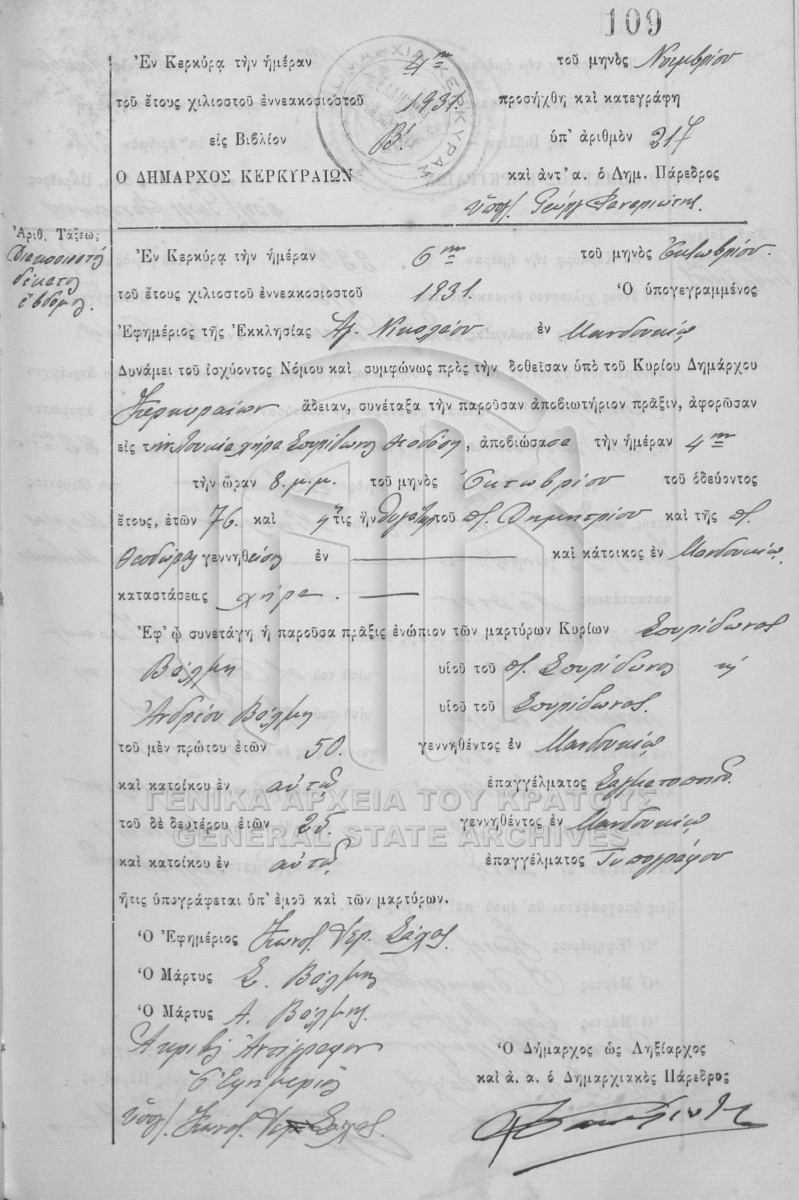 109
Ἐν Κερκύρᾳ τὴν ἡμέραν 4ην τοῦ μηνὸς Νοεμβρίου
τοῦ ἔτους χιλιοστοῦ ἐννεακοσιοστοῦ 1931. προσήχθη καὶ κατεγράφη
εἰς Βιβλίον Β'. ὑπ' ἀριθμὸν 217
Ο ΔΗΜΑΡΧΟΣ ΚΕΡΚΥΡΑΙΩΝ καὶ ἀντ' α. ὁ Δημ. Πάρεδρος
ὑπογ. Γεώργ. Φαναριώτης
Ἀριθ. Τάξεως
Διακοσιοστὴ
δεκάτη
ἑβδόμη.
Ἐν Κερκύρᾳ τὴν ἡμέραν 6ην τοῦ μηνὸς Ὀκτωβρίου.
τοῦ ἔτους χιλιοστοῦ ἐννεακοσιοστοῦ 1931. Ὁ ὑπογεγραμμένος
Ἐφημέριος τῆς Ἐκκλησίας Ἁγ. Νικολάου ἐν Μανδουκίῳ
Δυνάμει τοῦ ἰσχύοντος Νόμου καὶ συμφώνως πρὸς τὴν δοθεῖσαν ὑπὸ τοῦ Κυρίου Δημάρχου
Κερκυραίων ἄδειαν, συνέταξα τὴν παροῦσαν ἀποβιωτήριον πρᾶξιν, ἀφορῶσαν
εἰς τὴν χήρα Σπυρίδωνος, ἀποβιώσασα τὴν ἡμέραν 4ην
τὴν ὥραν 8. μ.μ. τοῦ μηνὸς Ὀκτωβρίου τοῦ ὁδεύοντος
ἔτους, ἐτῶν 76. καὶ ἥτις ἦν θυγάτηρ τοῦ π. Δημητρίου καὶ τῆς π.
Θεοδώρας γεννηθεῖσα ἐν καὶ κάτοικος ἐν Μανδουκίῳ
καταστάσεως χήρα.
Ἐφ' ᾧ συνετάγη ἡ παροῦσα πρᾶξις ἐνώπιον τῶν μαρτύρων Κυρίων Σπυρίδωνος
Βάλμη υἱοῦ τοῦ π. Σπυρίδωνος κὶ
Ἀνδρέου Βάλμη υἱοῦ τοῦ Σπυρίδωνος.
τοῦ μὲν πρώτου ἐτῶν 50. γεννηθέντος ἐν Μανδουκίῳ
καὶ κατοίκου ἐν αὐτῷ ἐπαγγέλματος Σαγματοποιοῦ.
τοῦ δὲ δευτέρου ἐτῶν 25. γεννηθέντος ἐν Μανδουκίῳ
καὶ κατοίκου ἐν αὐτῷ ἐπαγγέλματος Τυπογράφου
ἥτις ὑπογράφεται ὑπ' ἐμοῦ καὶ τῶν μαρτύρων.
Ὁ Ἐφημέριος Κωνσ. Σάχος.
Ὁ Μάρτυς Σ. Βάλμης
Ὁ Μάρτυς Α. Βάλμης.
Ἀκριβὲς Ἀντίγραφον
Ὁ Ἐφημέριος
ὑπογ. Κωνσ. Σάχος.
Ὁ Δήμαρχος ὡς Ληξίαρχος
καὶ ἀ. α. ὁ Δημαρχιακὸς Πάρεδρος
ΓΕΝΙΚΑ ΑΡΧΕΙΑ ΤΟΥ ΚΡΑΤΟΥΣ
GENERAL STATE ARCHIVES